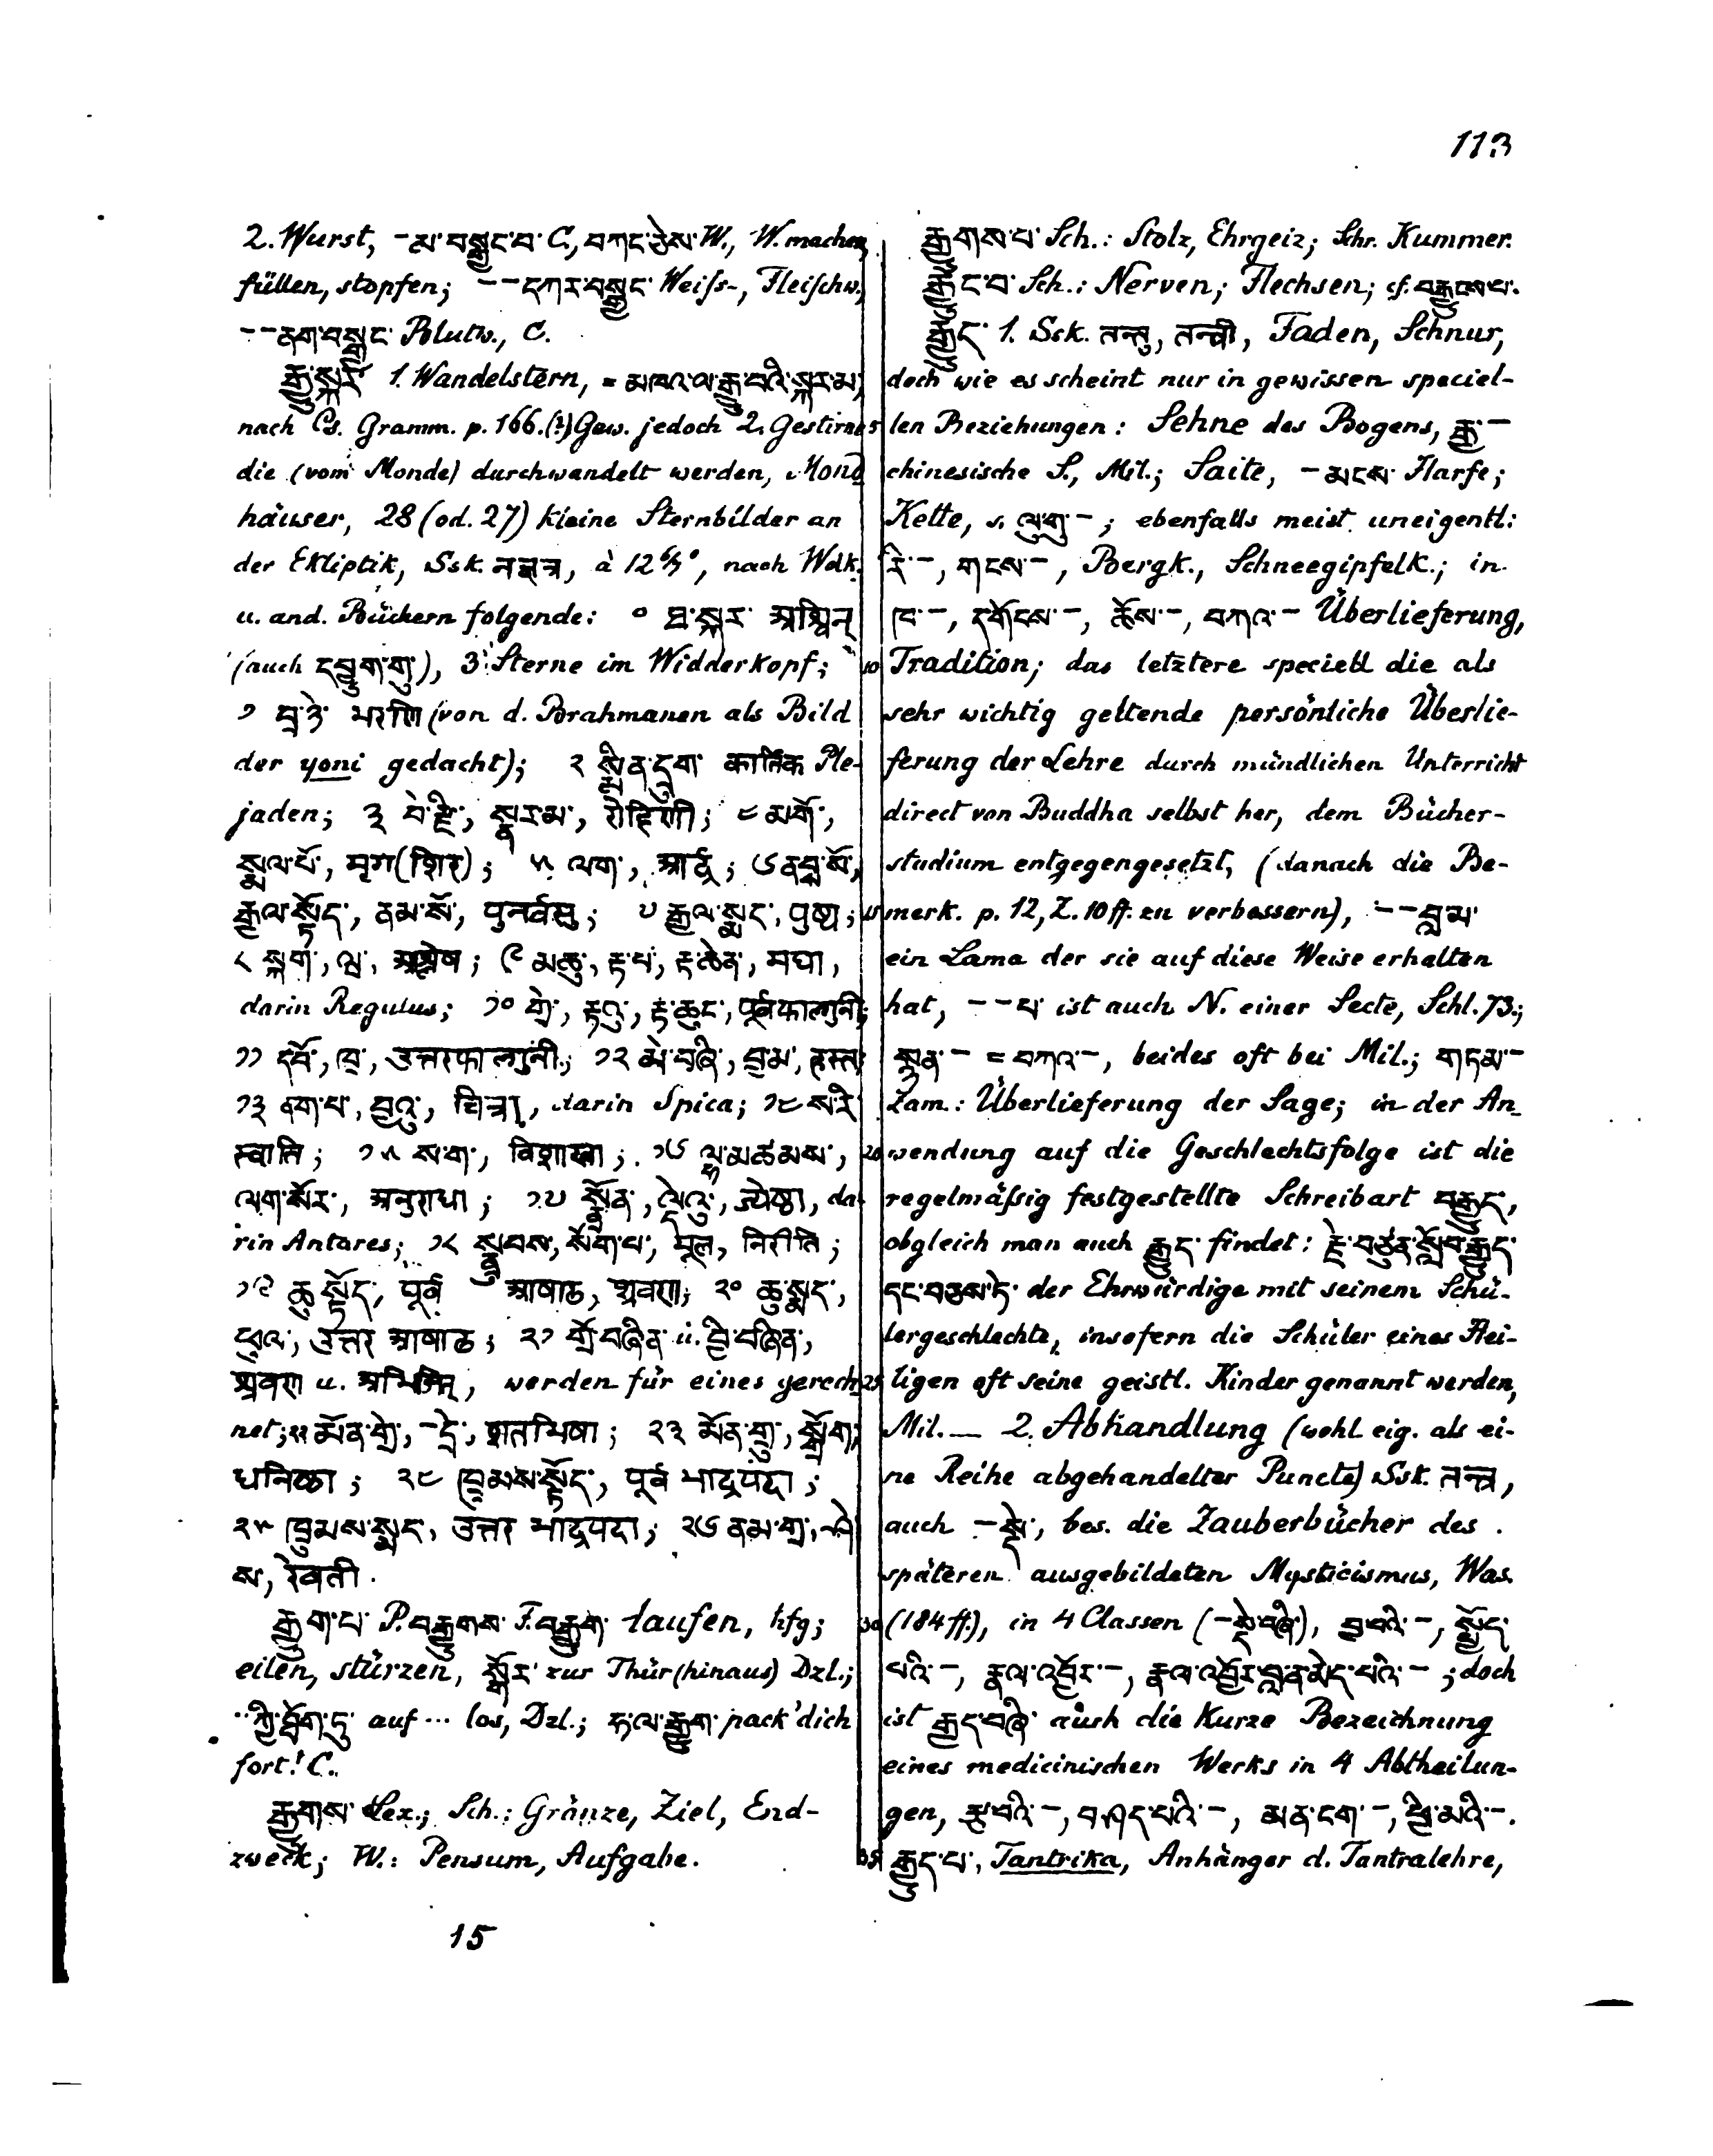 113
2. Wurst, -མ་བསྒྱང་བ་ C., བཀང་ཅེས་ W., W. machen,
füllen, stopfen; --དཀར་བསྒྱང་ Weiſs-, Fleiſchw.,
--ནག་བསྒྱང་ Blutw., C.
རྒྱུ་སྐར་ 1. Wandelstern, = མཁའ་ལ་རྒྱུ་བའི་སྐར་མ,
nach Cs. Gramm. p. 166. (?) Gew. jedoch 2. Gestirne
die (vom Monde) durchwandelt werden, Mond
häuser, 28 (od. 27) kleine Sternbilder an
der Ekliptik, Ssk. नक्षत्र, à 12 6/7°, nach Wdk.
u. and. Büchern folgende: ༠ ཐ་སྐར་ अश्विन्
(auch དབྱུག་གུ་), 3 Sterne im Widderkopf;
༡ བྲ་ཉེ་ भरणि (von d. Brahmanen als Bild
der yoni gedacht); ༢ སྨིན་དྲུག་ कार्तिक Ple-
jaden; ༣ བེ་རྫི་, སྣར་མ་, रोहिणी; ༤ མགོ་,
སྨལ་པོ་, मृग(शिर); ༥ ལག་, आर्द्र; ༦ ནབྲ་སོ་,
རྒྱལ་སྟོད་, ནམ་སོ་, पुनर्वसु; ༧ རྒྱལ་སྨད་, पुष्य;
༨ སྐག་, ལྭ་, अश्लेष; ༩ མཆུ་, རྟ་པ་, རྟ་ཆེན་, मघा,
darin Regulus; ༡༠ གྲེ་, རྟའུ་, རྟ་ཆུང་, पूर्वफाल्गुनी;
༡༡ དབོ་, ཁྲ་, उत्तरफाल्गुनी; ༡༢ མེ་བཞི་, བྲ་མ་, हस्त
༡༣ ནག་པ་, བྱའུ་, चित्रा, darin Spica; ༡༤ ས་རི་
स्वाति; ༡༥ ས་ག་, विशाखा; ༡༦ ལྷ་མཚམས་,
ལག་སོར་, अनुराधा; ༡༧ སྣྲོན་, ལྡེའུ་, ज्येष्ठा, da-
rin Antares; ༡༨ སྣྲུབས་, སོག་པ་, मूल, निरीति;
༡༩ ཆུ་སྟོད་, पूर्व आषाठ, श्रवण; ༢༠ ཆུ་སྨད་,
ཕུལ་, उत्तर आषाठ; ༢༡ གྲོ་བཞིན་ u. བྱི་བཞིན་,
श्रवण u. अभिजित्, werden für eines gerech-
net; ༢༢ མོན་གྲེ་, -དྲེ་, शतभिषा; ༢༣ མོན་གྲུ་, སྒྲོག་,
धनिष्ठा; ༢༤ ཁྲུམས་སྟོད་, पूर्व भाद्रपदा;
༢༥ ཁྲུམས་སྨད་, उत्तर भाद्रपदा; ༢༦ ནམ་གྲུ་, ཤེ
ས་, रेवती.
རྒྱུག་པ་ P. བརྒྱུགས་ F. བརྒྱུག་ laufen, hfg;
eilen, stürzen, སྒོར་ zur Thür (hinaus) Dzl.;
··ཀྱི་ཐོག་ཏུ་ auf ··· los, Dzl.; ཧ་ལ་རྒྱུག་ pack' dich
fort! C.
རྒྱུགས་ Lex.; Sch.: Gränze, Ziel, End-
zweck; W.: Pensum, Aufgabe.
རྒྱགས་པ་ Sch.: Stolz, Ehrgeiz; Schr. Kummer.
རྒྱུང་བ་ Sch.: Nerven; Flechsen; cf. བརྒྱུངས་པ་.
རྒྱུད་ 1. Ssk. तन्तु, तन्त्री, Faden, Schnur,
doch wie es scheint nur in gewissen speciel-
5 len Beziehungen: Sehne des Bogens, རྒྱ་-
chinesische S., Mil.; Saite, -མངས་ Harfe;
Kette, s. ལུ་གུ་-; ebenfalls meist uneigentl:
རི་-, གངས་-, Bergk., Schneegipfelk.; in
ཁ་-, དགོངས་-, ཆོས་-, བཀའ་- Überlieferung,
10 Tradition; das letztere speciell die als
sehr wichtig geltende persönliche Überlie-
ferung der Lehre durch mündlichen Unterricht
direct von Buddha selbst her, dem Bücher-
studium entgegengesetzt, (danach die Be-
15 merk. p. 12, Z. 10 ff. zu verbessern), --བླ་མ་
ein Lama der sie auf diese Weise erhalten
hat, --པ་ ist auch N. einer Secte, Schl. 73.;
སྙན་- = བཀའ་-, beides oft bei Mil.; གཏམ་-
Zam.: Überlieferung der Sage; in der An-
20 wendung auf die Geschlechtsfolge ist die
regelmäſsig festgestellte Schreibart བརྒྱུད་,
obgleich man auch རྒྱུད་ findet: རྗེ་བཙུན་སློབ་རྒྱུད་
དང་བཅས་ཏེ་ der Ehrwürdige mit seinem Schü-
lergeschlechte, insofern die Schüler eines Hei-
25 ligen oft seine geistl. Kinder genannt werden,
Mil. — 2. Abhandlung (wohl eig. als ei-
ne Reihe abgehandelter Puncte) Ssk. तन्त्र,
auch -སྡེ་, bes. die Zauberbücher des
späteren ausgebildeten Mysticismus, Was.
30 (184 ff.), in 4 Classen (-སྡེ་བཞི་), བྱ་བའི་-, སྤྱོད་
པའི་-, རྣལ་འབྱོར་-, རྣལ་འབྱོར་བླ་ན་མེད་པའི་-; doch
ist རྒྱུད་བཞི་ auch die kurze Bezeichnung
eines medicinischen Werks in 4 Abtheilun-
gen, རྩ་བའི་-, བཤད་པའི་-, མན་ངག་-, ཕྱི་མའི་-.
35 རྒྱུད་པ་, Tantrika, Anhänger d. Tantralehre,
15